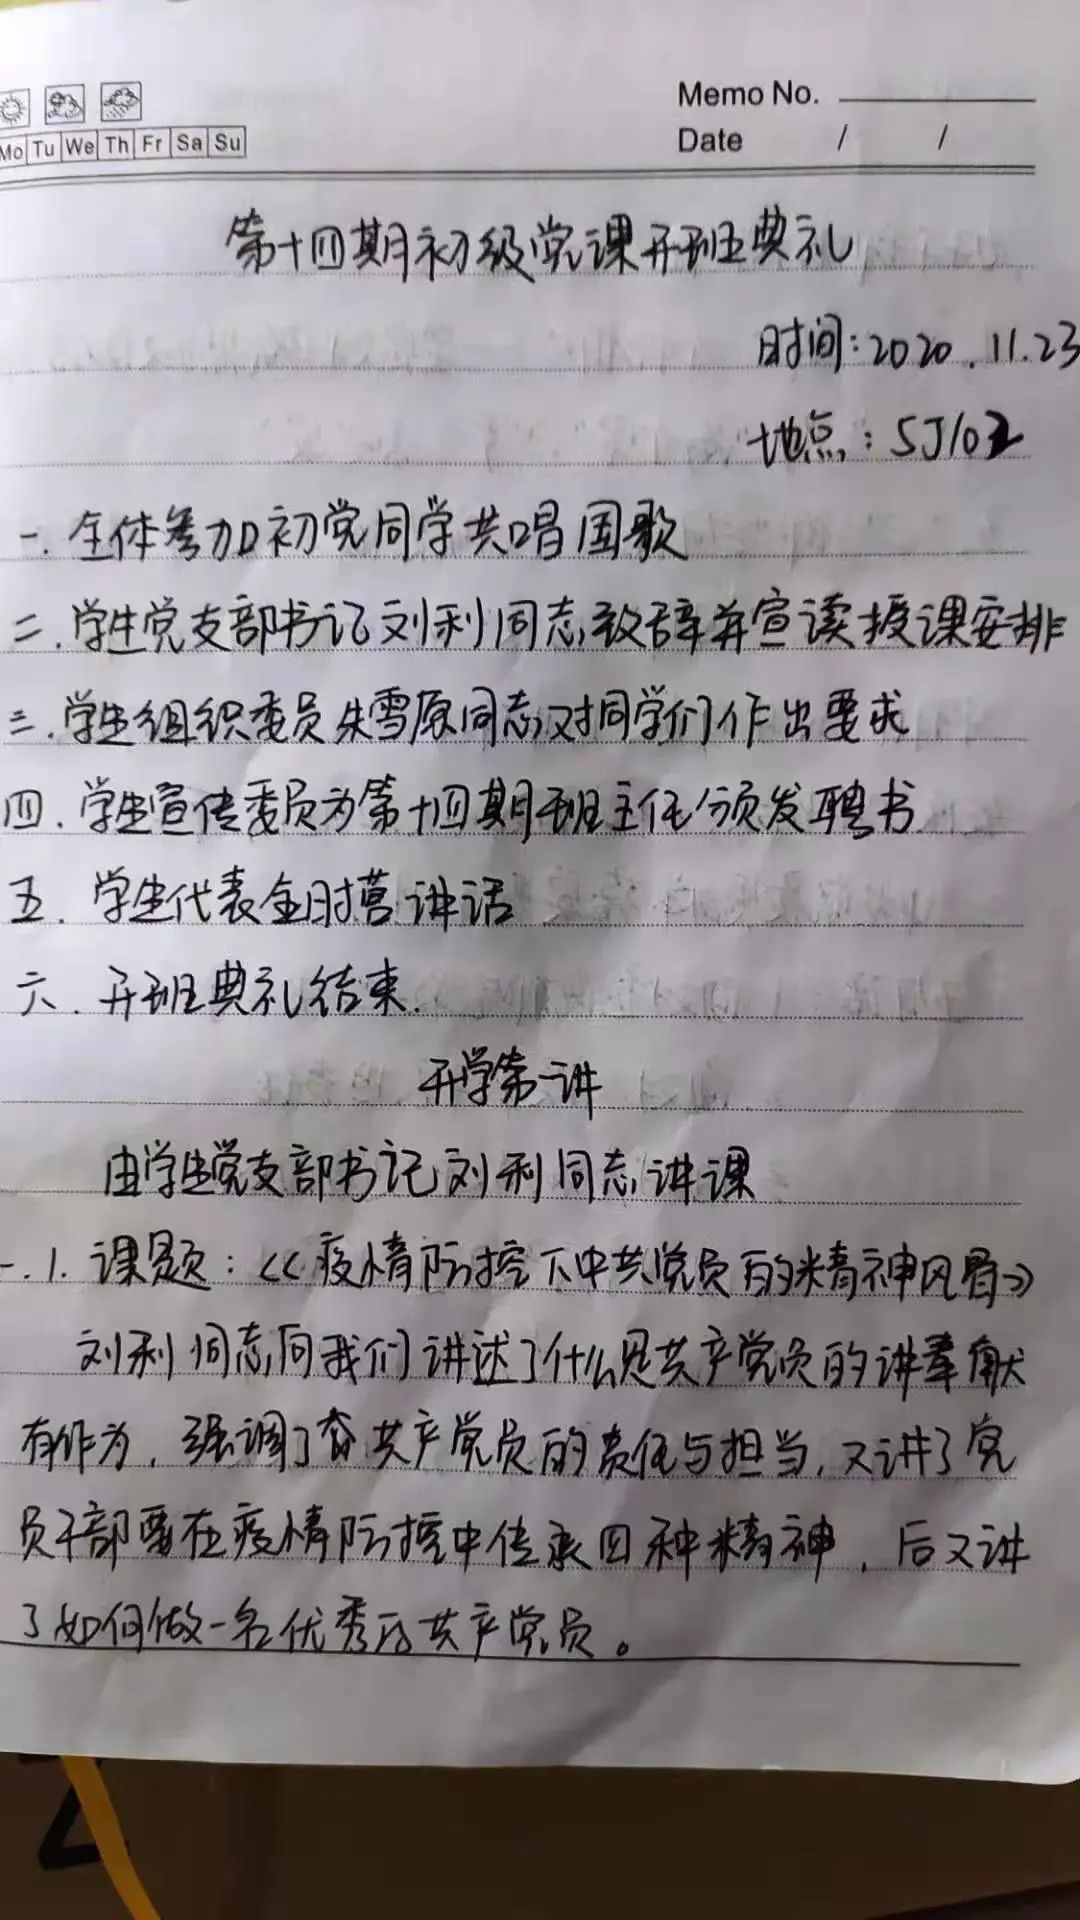 Memo No.
Mo Tu We Th Fr Sa Su
Date / /
第十四期初级党课开班典礼
时间:2020.11.23
地点:SJ102
一.全体参加初党同学共唱国歌
二.学生党支部书记刘利同志致辞并宣读授课安排
三.学生组织委员朱雪原同志对同学们作出要求
四.学生宣传委员为第十四期班主任颁发聘书
五.学生代表金时营讲话
六.开班典礼结束.
开学第一讲
由学生党支部书记刘利同志讲课
一.1.课题:<<疫情防控下中共党员的精神风骨>>
刘利同志向我们讲述了什么是共产党员的讲奉献
有作为,强调了共产党员的责任与担当,又讲了党
员干部要在疫情防控中传承四种精神,后又讲
了如何做一名优秀的共产党员。